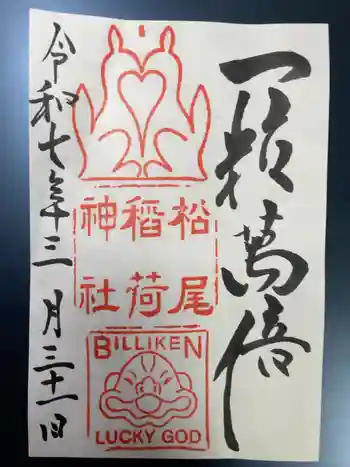 一粒萬倍
松尾
稲荷
神社
BILLIKEN
LUCKY GOD
令和七年三月三十一日